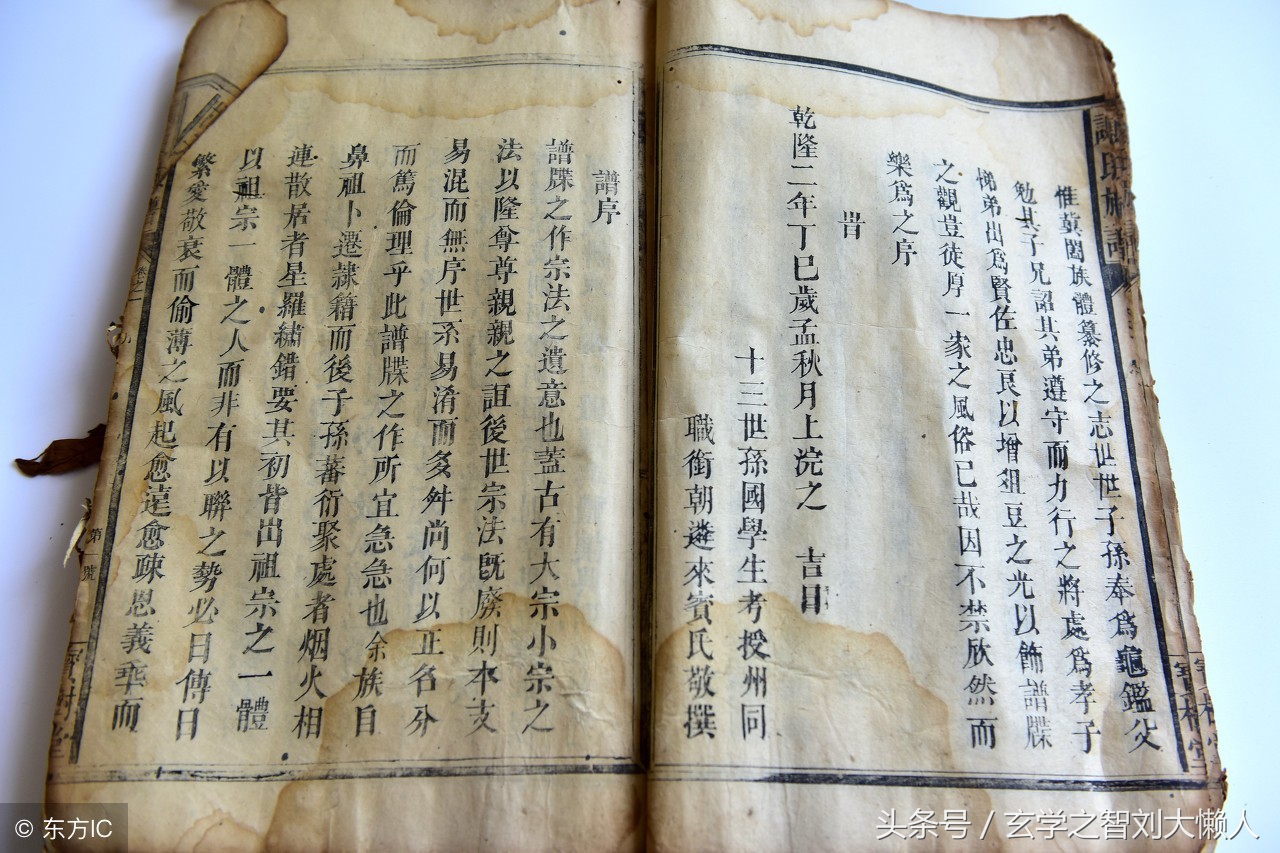 惟冀闔族體纂修之志世世子孫奉為龜鑑父
勉其子兄詔其弟遵守而力行之將處為孝子
悌弟出為賢佐忠良以增俎豆之光以飾譜牒
之觀豈徒厚一家之風俗已哉因不禁欣然而
樂為之序
旹
乾隆二年丁巳歲孟秋月上浣之 吉日
十三世孫國學生考授州同
職銜朝遴來賓氏敬撰
譜序
譜牒之作宗法之遺意也蓋古有大宗小宗之
法以隆尊尊親親之誼後世宗法既廢則本支
易混而無序世系易淆而多舛尚何以正名分
而篤倫理乎此譜牒之作所宜急急也余族自
鼻祖卜遷隷籍而後子孫蕃衍聚處者烟火相
連散居者星羅繡錯要其初皆出祖宗之一體
以祖宗一體之人而非有以聯之勢必日傳日
繁愛敬衰而偷薄之風起愈遠愈疎恩義乖而
第一號
© 东方IC
头条号 / 玄学之智刘大懒人